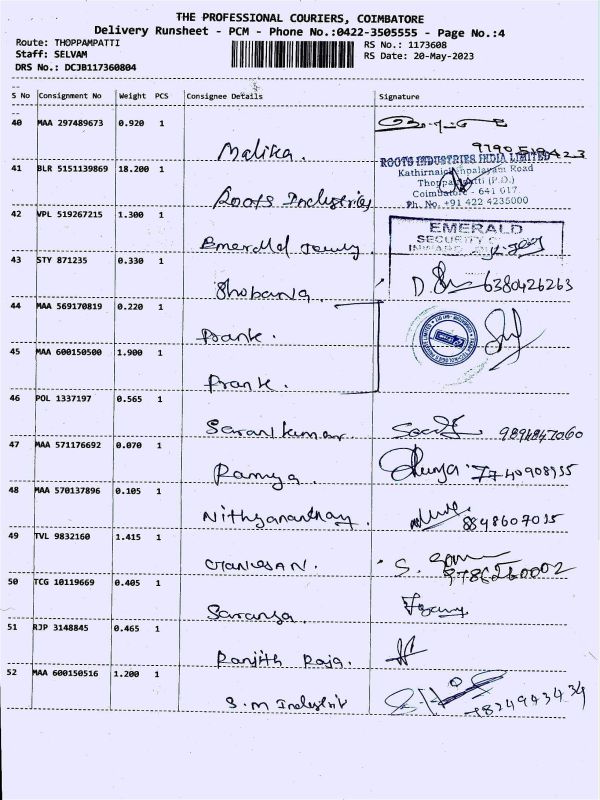 THE PROFESSIONAL COURIERS, COIMBATORE
Delivery Runsheet - PCM - Phone No.:0422-3505555 - Page No.:4
Route: THOPPAMPATTI RS No.: 1173608
Staff: SELVAM RS Date: 20-May-2023
DRS No.: DCJB117360804
S No Consignment No Weight PCS Consignee Details Signature
40 MAA 297489673 0.920 1
Malika.
41 BLR 5151139869 18.200 1 ROOTS INDUSTRIES INDIA LIMITED
Kathirnaickenpalayam Road
Thoppampatti (P.O.)
Coimbatore - 641 017
Roots Industries Ph. No. +91 422 4235000
42 VPL 519267215 1.300 1 EMERALD
SECURITY
Emerald
43 STY 871235 0.330 1
Shobana 6380426263
44 MAA 569170819 0.220 1
45 MAA 600150500 1.900 1
46 POL 1337197 0.565 1
Saran kumar 9894847060
47 MAA 571176692 0.070 1
Ramya. 7740908955
48 MAA 570137896 0.105 1
8848607015
49 TVL 9832160 1.415 1
50 TCG 10119669 0.405 1
51 RJP 3148845 0.465 1
Ranjith Raja.
52 MAA 600150516 1.200 1
S.M